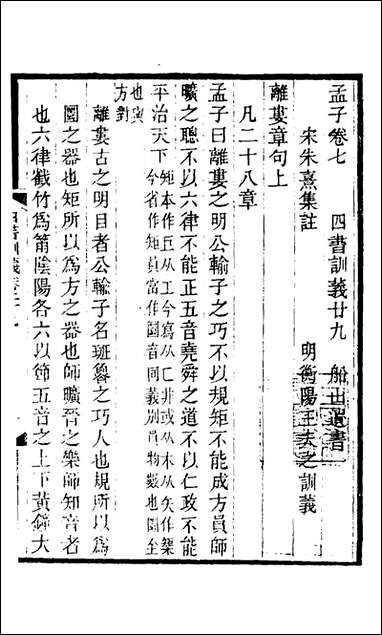 孟子卷七　四書訓義廿九　船山遺書
宋朱熹集註　明衡陽王夫之訓義
離婁章句上
凡二十八章
孟子曰離婁之明公輸子之巧不以規矩不能成方員師
曠之聰不以六律不能正五音堯舜之道不以仁政不能
平治天下
矩本作巨从工今寫从匚非或从木从矢作榘
今省作矩員當作圓音同義別員物數也圓全
也與
方對
離婁古之明目者公輸子名班魯之巧人也規所以爲
圜之器也矩所以爲方之器也師曠晉之樂師知音者
也六律截竹爲筩陰陽各六以節五音之上下黃鍾大
四書訓義卷二十九